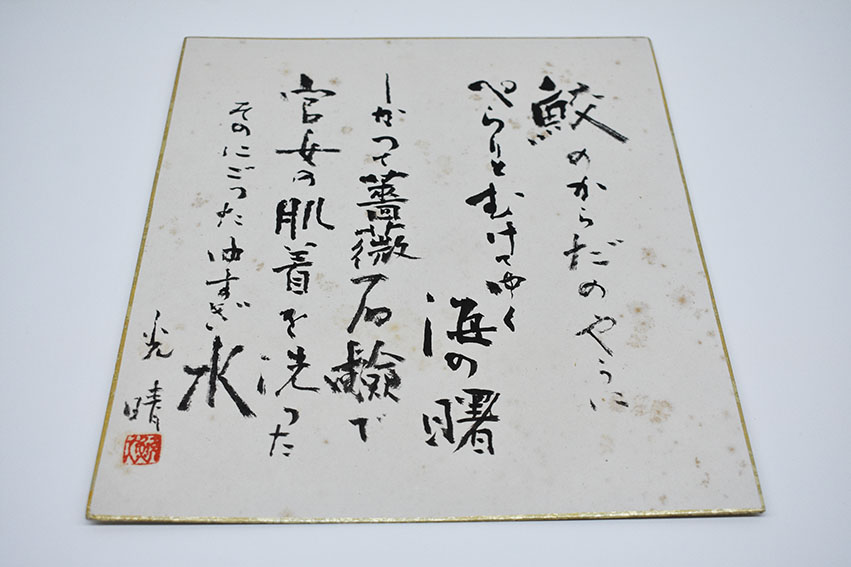 鮫のからだのやうに
ぺらりとむけてゆく
海の曙
かつて薔薇石鹸で
官女の肌着を洗つた
そのにごつたゆすぎ水
光晴